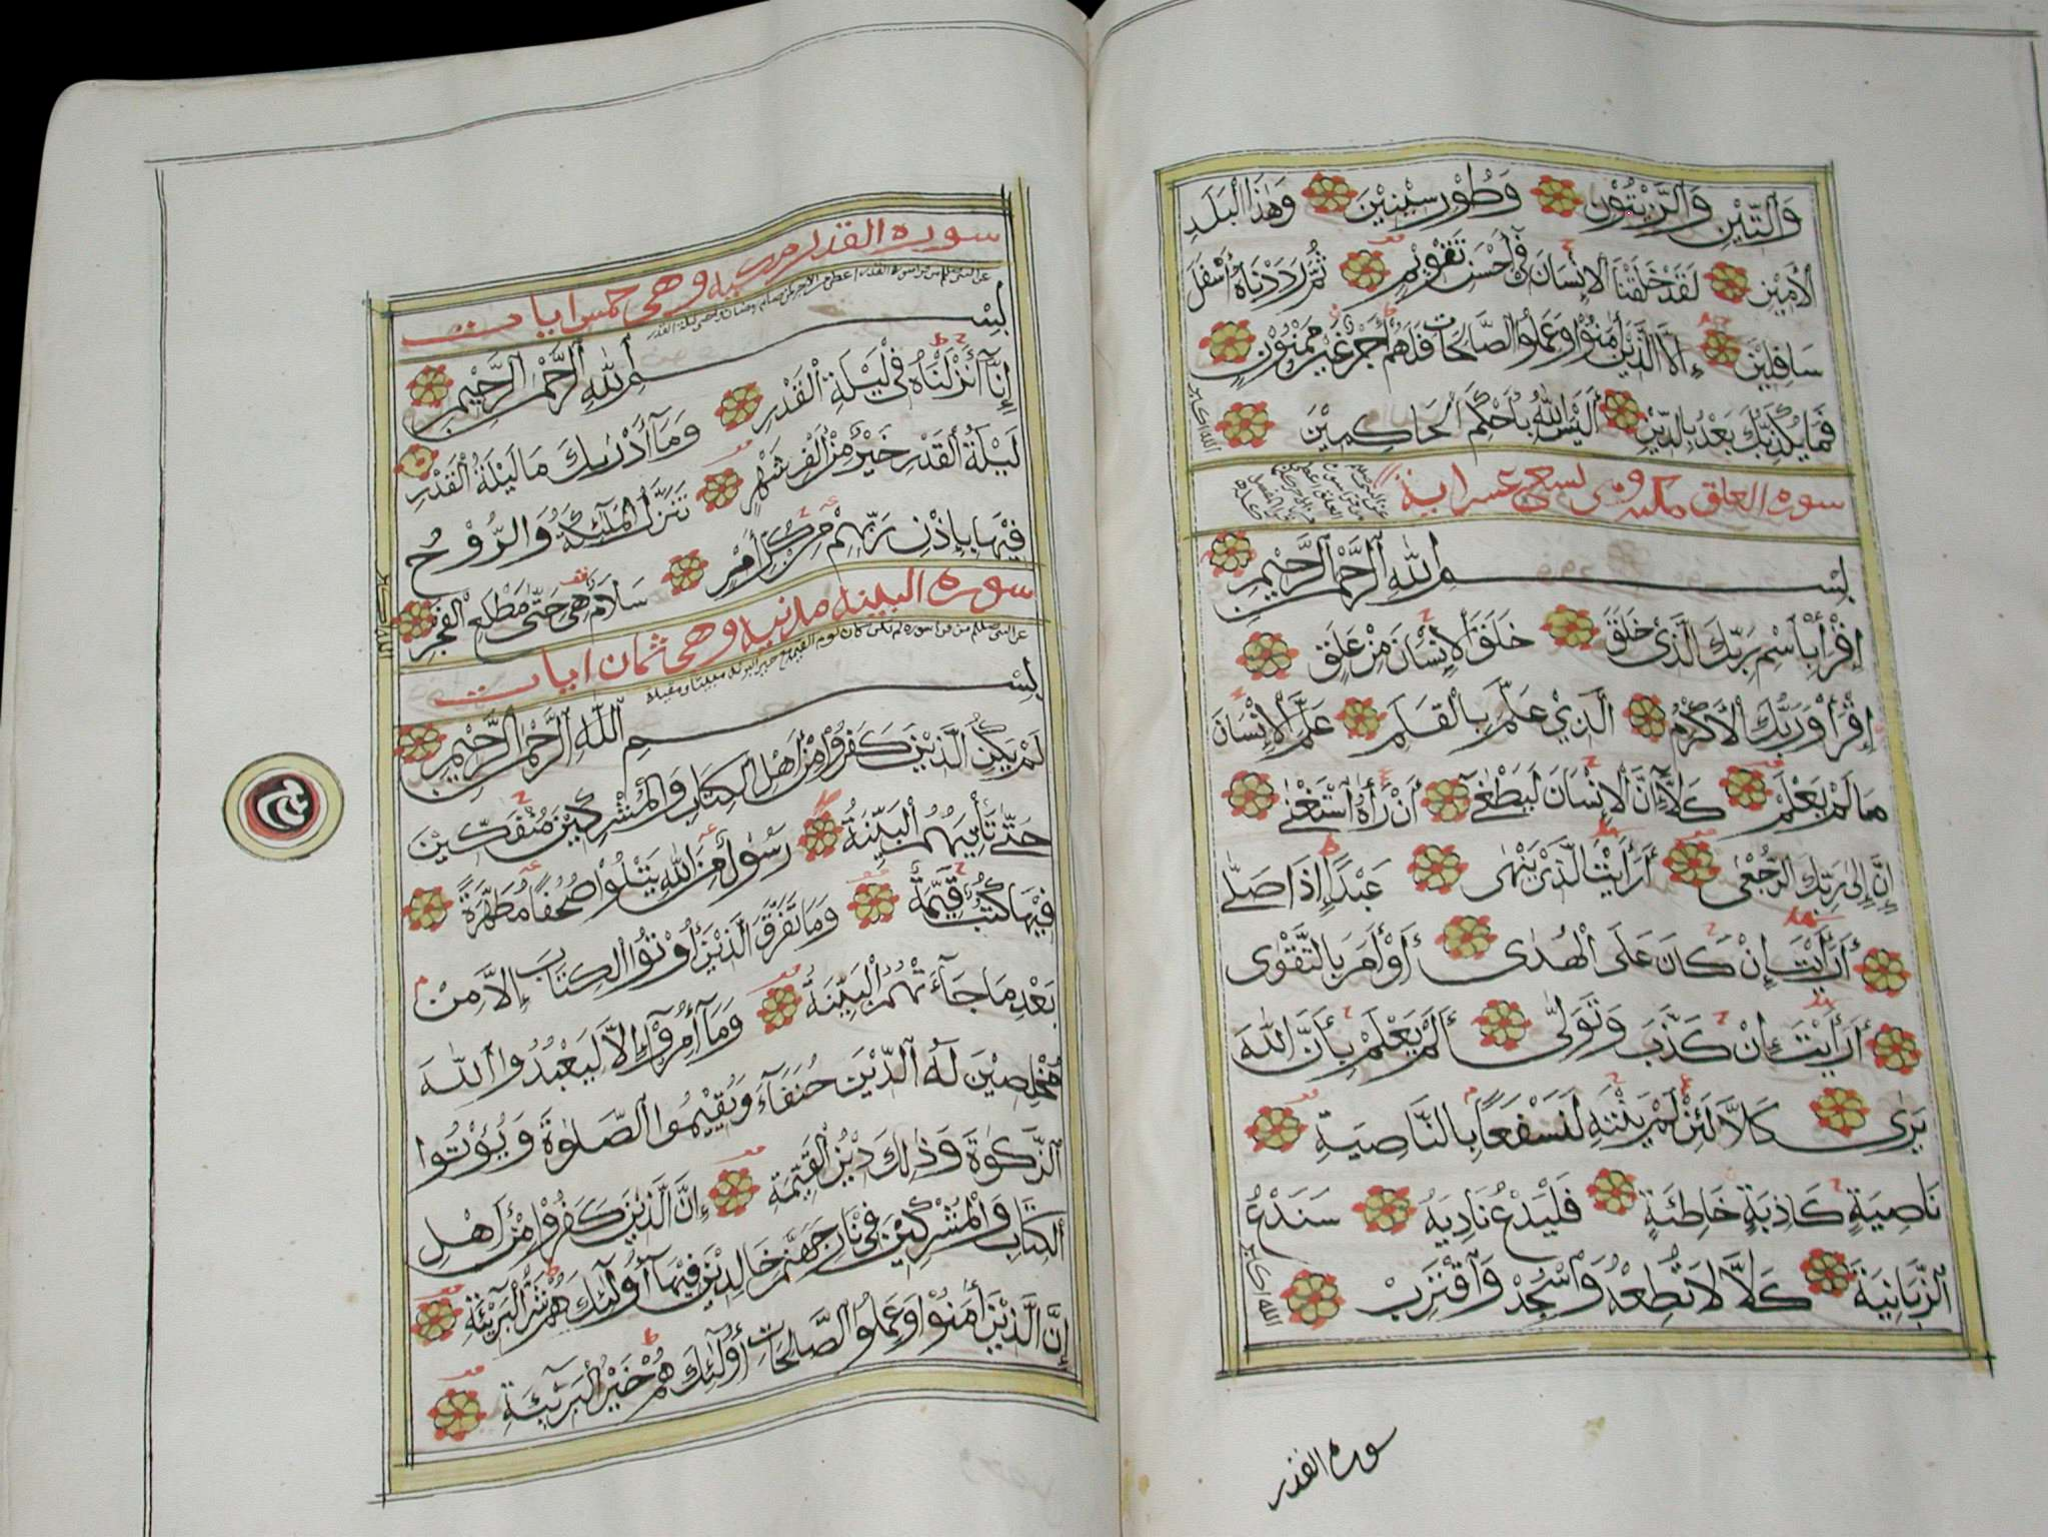 وَالتِّيْنِ وَالزَّيْتُوْنِ وَطُوْرِ سِيْنِيْنَ وَهٰذَا الْبَلَدِ
الْاَمِيْنِ لَقَدْ خَلَقْنَا الْاِنْسَانَ فِيْ اَحْسَنِ تَقْوِيْمٍ ثُمَّ رَدَدْنَاهُ اَسْفَلَ
سَافِلِيْنَ اِلَّا الَّذِيْنَ اٰمَنُوْا وَعَمِلُوا الصَّالِحَاتِ فَلَهُمْ اَجْرٌ غَيْرُ مَمْنُوْنٍ
فَمَا يُكَذِّبُكَ بَعْدُ بِالدِّيْنِ اَلَيْسَ اللّٰهُ بِاَحْكَمِ الْحَاكِمِيْنَ
الله اكبر
سوره العلق مكيه وهى تسعة عشر اية
بِسْمِ اللّٰهِ الرَّحْمٰنِ الرَّحِيْمِ
اِقْرَأْ بِاسْمِ رَبِّكَ الَّذِيْ خَلَقَ خَلَقَ الْاِنْسَانَ مِنْ عَلَقٍ
اِقْرَأْ وَرَبُّكَ الْاَكْرَمُ الَّذِيْ عَلَّمَ بِالْقَلَمِ عَلَّمَ الْاِنْسَانَ
مَا لَمْ يَعْلَمْ كَلَّا اِنَّ الْاِنْسَانَ لَيَطْغٰى اَنْ رَاٰهُ اسْتَغْنٰى
اِنَّ اِلٰى رَبِّكَ الرُّجْعٰى اَرَاَيْتَ الَّذِيْ يَنْهٰى عَبْدًا اِذَا صَلّٰى
اَرَاَيْتَ اِنْ كَانَ عَلَى الْهُدٰى اَوْ اَمَرَ بِالتَّقْوٰى
اَرَاَيْتَ اِنْ كَذَّبَ وَتَوَلّٰى اَلَمْ يَعْلَمْ بِاَنَّ اللّٰهَ
يَرٰى كَلَّا لَئِنْ لَمْ يَنْتَهِ لَنَسْفَعًا بِالنَّاصِيَةِ
نَاصِيَةٍ كَاذِبَةٍ خَاطِئَةٍ فَلْيَدْعُ نَادِيَهُ سَنَدْعُ
الزَّبَانِيَةَ كَلَّا لَا تُطِعْهُ وَاسْجُدْ وَاقْتَرِبْ
الله اكبر
سوره القدر
سوره القدر مكيه وهى خمس ايات
بِسْمِ اللّٰهِ الرَّحْمٰنِ الرَّحِيْمِ
اِنَّا اَنْزَلْنَاهُ فِيْ لَيْلَةِ الْقَدْرِ وَمَا اَدْرٰىكَ مَا لَيْلَةُ الْقَدْرِ
لَيْلَةُ الْقَدْرِ خَيْرٌ مِنْ اَلْفِ شَهْرٍ تَنَزَّلُ الْمَلٰئِكَةُ وَالرُّوْحُ
فِيْهَا بِاِذْنِ رَبِّهِمْ مِنْ كُلِّ اَمْرٍ سَلَامٌ هِيَ حَتّٰى مَطْلَعِ الْفَجْرِ
الله اكبر
سوره البينه مدنيه وهى ثمان ايات
بِسْمِ اللّٰهِ الرَّحْمٰنِ الرَّحِيْمِ
لَمْ يَكُنِ الَّذِيْنَ كَفَرُوْا مِنْ اَهْلِ الْكِتَابِ وَالْمُشْرِكِيْنَ مُنْفَكِّيْنَ
حَتّٰى تَأْتِيَهُمُ الْبَيِّنَةُ رَسُوْلٌ مِنَ اللّٰهِ يَتْلُوْا صُحُفًا مُطَهَّرَةً
فِيْهَا كُتُبٌ قَيِّمَةٌ وَمَا تَفَرَّقَ الَّذِيْنَ اُوْتُوا الْكِتَابَ اِلَّا مِنْ
بَعْدِ مَا جَآءَتْهُمُ الْبَيِّنَةُ وَمَا اُمِرُوْا اِلَّا لِيَعْبُدُوا اللّٰهَ
مُخْلِصِيْنَ لَهُ الدِّيْنَ حُنَفَآءَ وَيُقِيْمُوا الصَّلٰوةَ وَيُؤْتُوا
الزَّكٰوةَ وَذٰلِكَ دِيْنُ الْقَيِّمَةِ اِنَّ الَّذِيْنَ كَفَرُوْا مِنْ اَهْلِ
الْكِتَابِ وَالْمُشْرِكِيْنَ فِيْ نَارِ جَهَنَّمَ خَالِدِيْنَ فِيْهَا اُولٰئِكَ هُمْ شَرُّ الْبَرِيْئَةِ
اِنَّ الَّذِيْنَ اٰمَنُوْا وَعَمِلُوا الصَّالِحَاتِ اُولٰئِكَ هُمْ خَيْرُ الْبَرِيْئَةِ